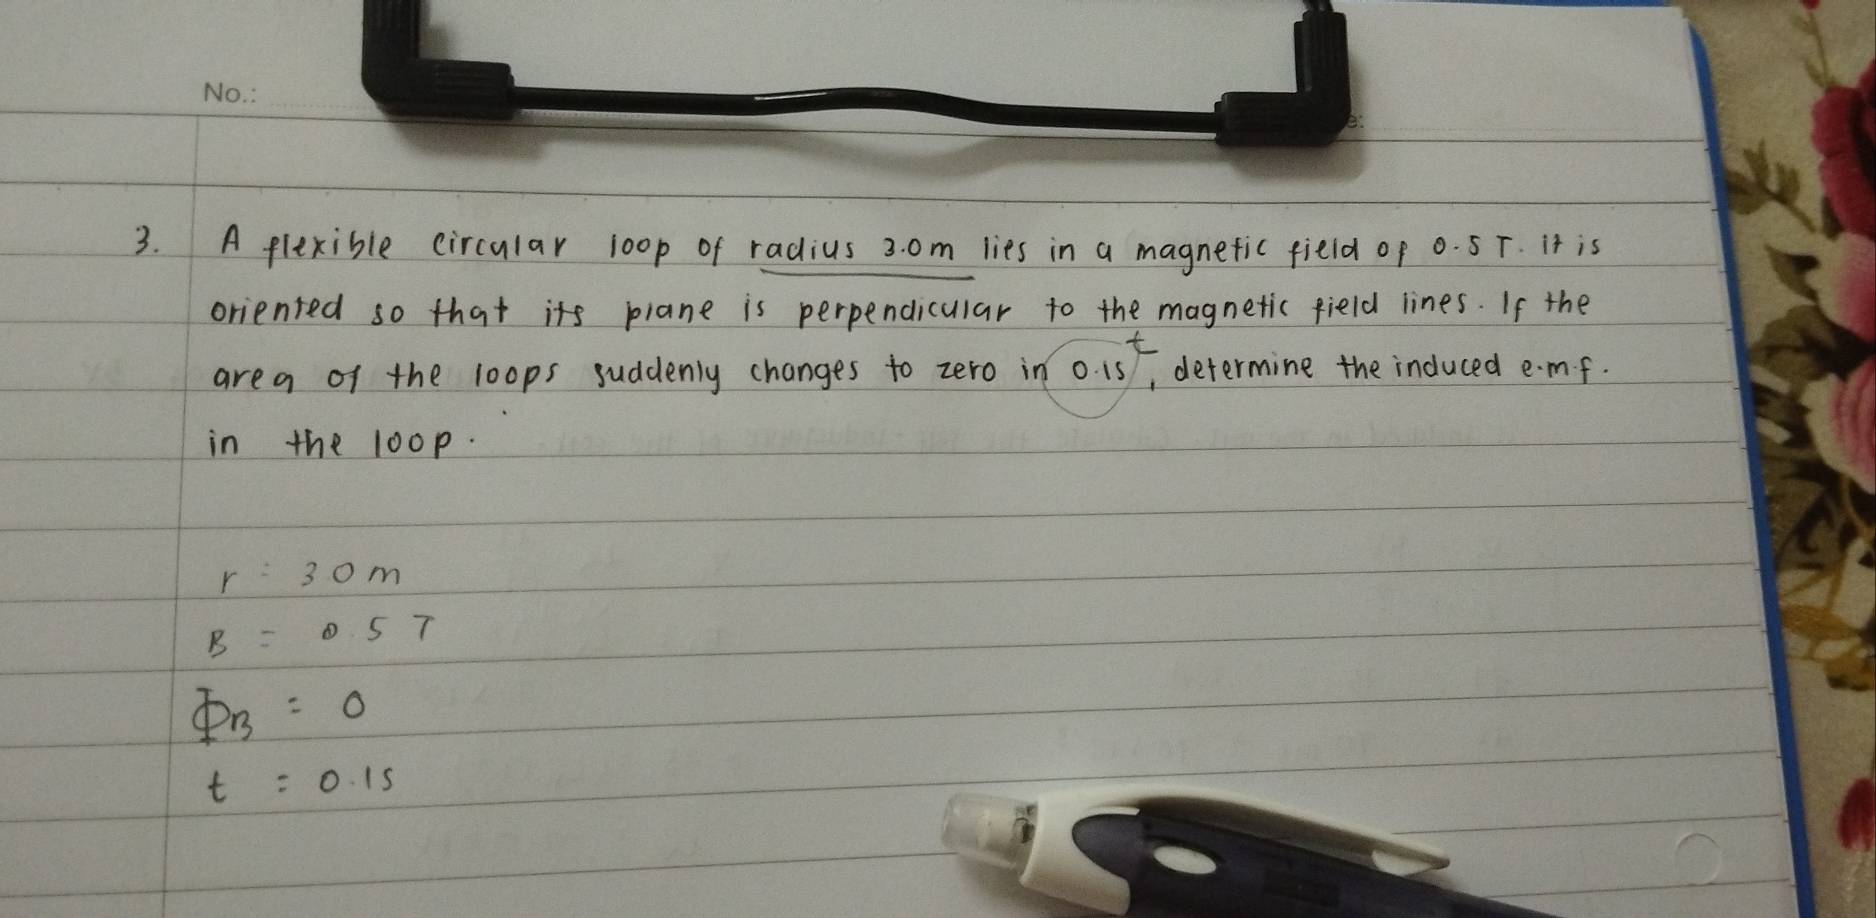 No.:
e:
3. A flexible circular loop of radius 3.0m lies in a magnetic field of 0.5T. It is
oriented so that its plane is perpendicular to the magnetic field lines. If the
area of the loops suddenly changes to zero in 0.1s, determine the induced e.m.f.
t
in the loop.
r = 3.0m
B = 0.5 T
ΦB = 0
t = 0.1s